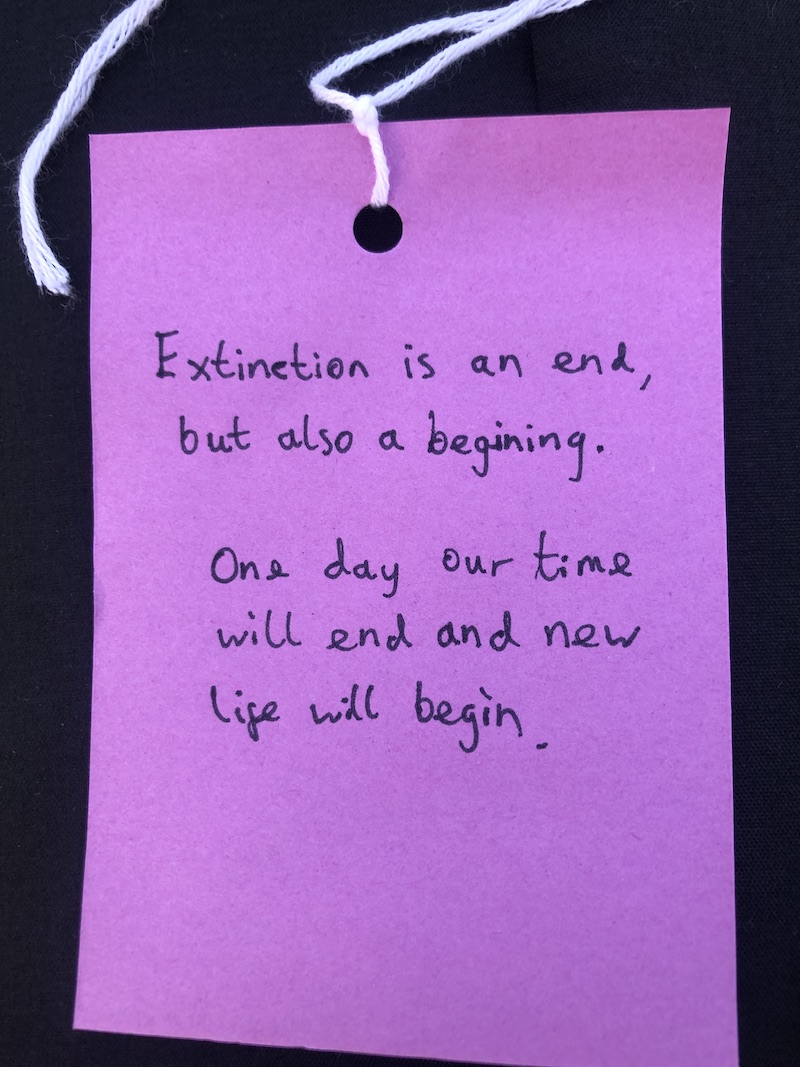 Extinction is an end,
but also a begining.
One day our time
will end and new
life will begin.